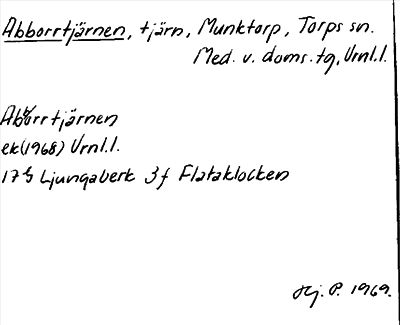 Abborrtjärnen, tjärn, Munktorp, Torps sn.
Med. v. doms. tg, Vrnl.l.
Abborrtjärnen
ek(1968) Vrnl.l.
17 G Ljungaverk 3 f Flataklocken
Hj. P. 1969.